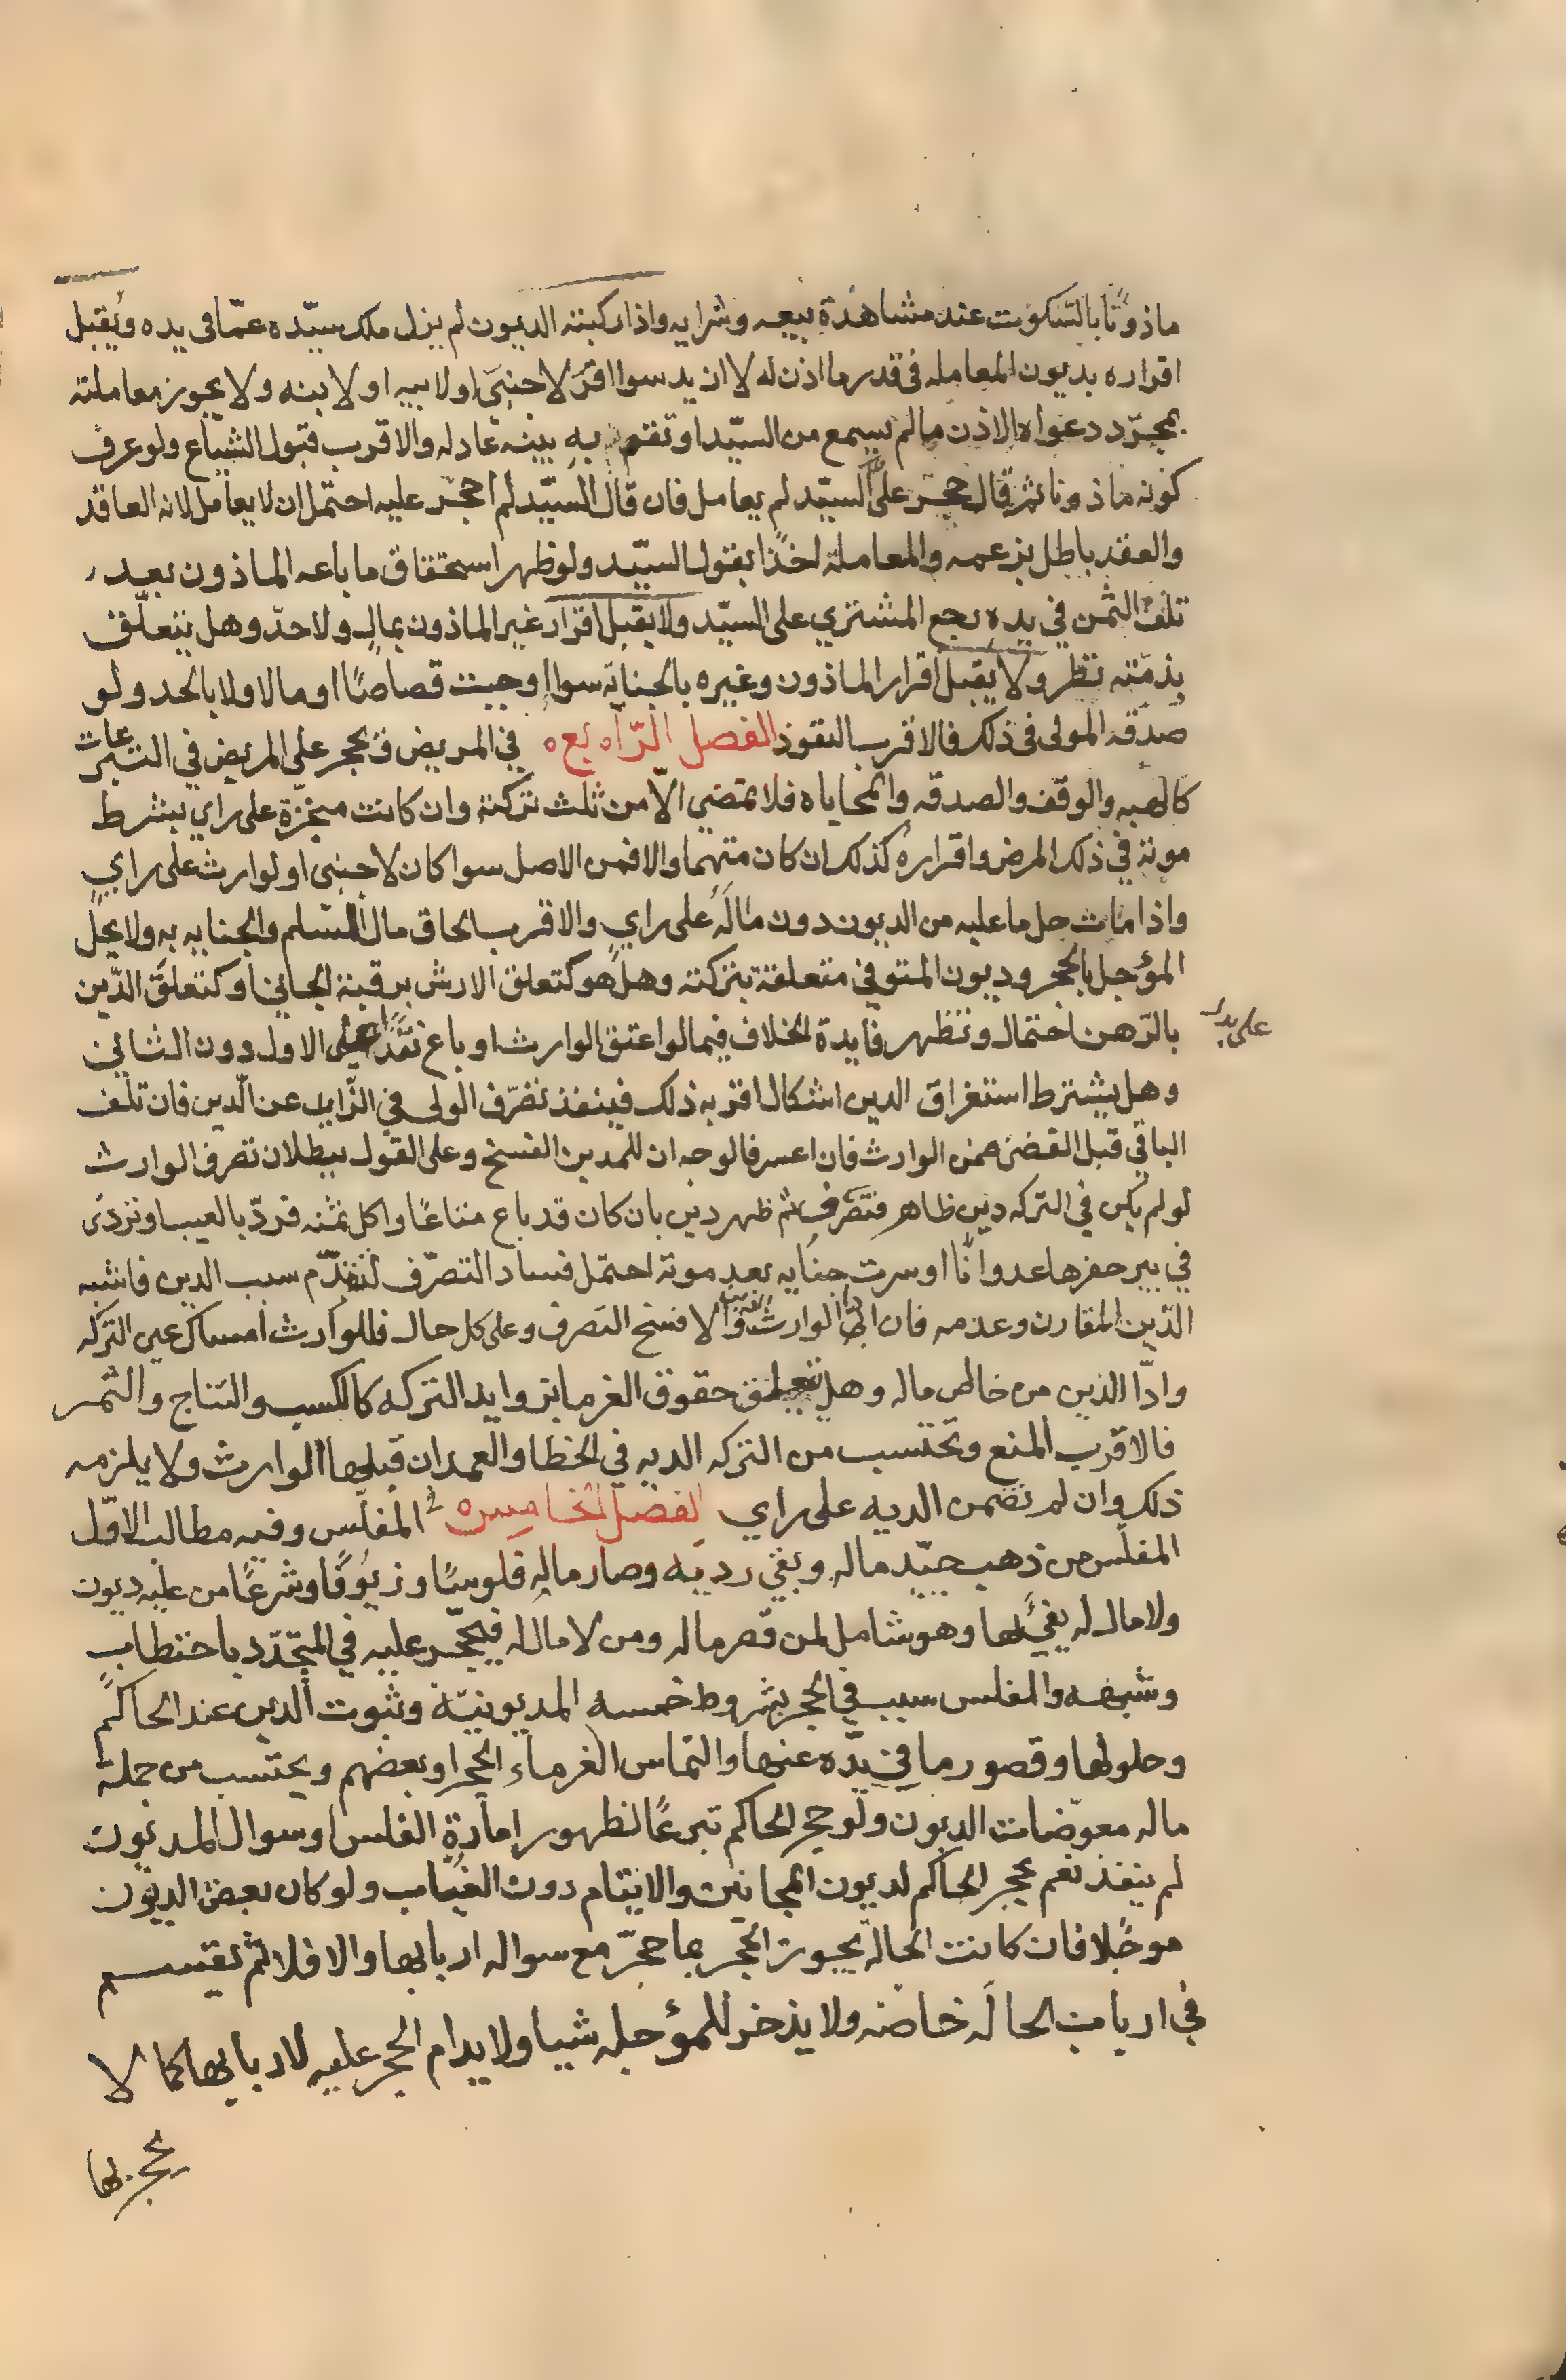 ماذونًا بالسّكوت عند مشاهدة بيعه وشرايه واذا ركبته الديون لم يزل ملك سيّده عمّا في يده ويُقبل
اقراره بديون المعامله في قدر ما اذن له لا ازيد سوا اقرّ لاجنبيّ او لابيه او لابنه ولا يجوز معاملته
بمجرّد دعواه الاذن ما لم يسمع من السيّد او تقم به بينه عادله والاقرب قبول الشياع ولو عرف
كونه ماذونا ثمّ قال حجر علىّ السيّد لم يعامل فان قال السيّد لم احجر عليه احتمل ان لا يعامل لانه العاقد
والعقد باطل بزعمه والمعاملة اخذًا بقول السيّد ولو ظهر استحقاق ما باعه الماذون بعد
تلف الثمن في يده رجع المشتري على السيّد ولا يقبل اقرار غير الماذون بمال ولا حدّ وهل يتعلّق
بذمّته نظر ولا يقبل اقرار الماذون وغيره بالجناية سوا اوجبت قصاصًا او مالا ولا بالحد ولو
صدّقه المولى في ذلك فالاقرب النفوذ الفصل الرّابع في المريض ويحجر على المريض في التبرّعات
كالهبه والوقف والصدقه والمحاباه فلا تمضي الّا من ثلث تركته وان كانت منجّزة على راي بشرط
موته في ذلك المرض واقراره كذلك ان كان متهما والا فمن الاصل سوا كان لاجنبي او لوارث على راي
واذا مات حل ما عليه من الديون دون ماله على راي والاقرب الحاق مال السلم والجنايه به ولا يحلّ
المؤجل بالحجر وديون المتوفي متعلقة بتركته وهل هو كتعلق الارش برقبة الجاني او كتعلق الدّين
بالرّهن احتمال وتظهر فايدة الخلاف فيما لو اعتق الوارث او باع نفّذا على الاول دون الثاني
على راي
وهل يشترط استغراق الدين اشكال اقربه ذلك فينفذ تصرّف الولي في الزّايد عن الدين فان تلف
الباقي قبل القضى ضمن الوارث فان اعسر فالوجه ان للمدين الفسخ وعلى القول ببطلان تصرف الوارث
لو لم يكن في التركه دين ظاهر فتصرّف ثم ظهر دين بان كان قد باع متاعًا واكل ثمنه فردّ بالعيب او تردّى
في بير حفرها عدوانًا او سرت جنايه بعد موته احتمل فساد التصرّف لتقدّم سبب الدين فاشبه
الدّين المقارن وعدمه فان ادّى الوارث والا فسخ التصرف وعلى كل حال فللوارث امساك عين التركه
وادّا الدين من خالص ماله وهل تتعلق حقوق الغرما بزوايد التركه كالكسب والنتاج والثمر
فالاقرب المنع وتحتسب من التركه الديه في الخطا والعمد ان قبلها الوارث ولا يلزمه
ذلك وان لم تضمن الديه على راي الفصل الخامس في المفلّس وفيه مطالب الاوّل
المفلّس من ذهب جيّد ماله وبقي رديه وصار ماله فلوسًا وزيوُفًا وشرعًا من عليه ديون
ولا مال له يفي لها وهو شامل لمن قصر ماله ومن لا مال له فيحجر عليه في المتجدّد باحتطاب
وشبهه والمفلس سبب في الحجر بشروط خمسه المديونيّة وثبوت الدين عند الحاكم
وحلولها وقصور ما في يدّه عنها والتماس الغرماء الحجر او بعضهم ويحتسب من جملة
ماله معوّضات الديون ولو حجر الحاكم تبرعًا لظهور امارة الفلس او سوال المديون
لم ينفذ نعم يحجر الحاكم لديون المجانين والايتام دون الغيّاب ولو كان بعض الديون
موجّلا فان كانت الحالّة يجوز الحجر بها حجرّ مع سواله اربابها والا فلا ثم تقسم
في ارباب الحالّه خاصّه ولا يذخر للمؤجله شيا ولا يدام الحجر عليه لاربابها كما لا
يحجر بها